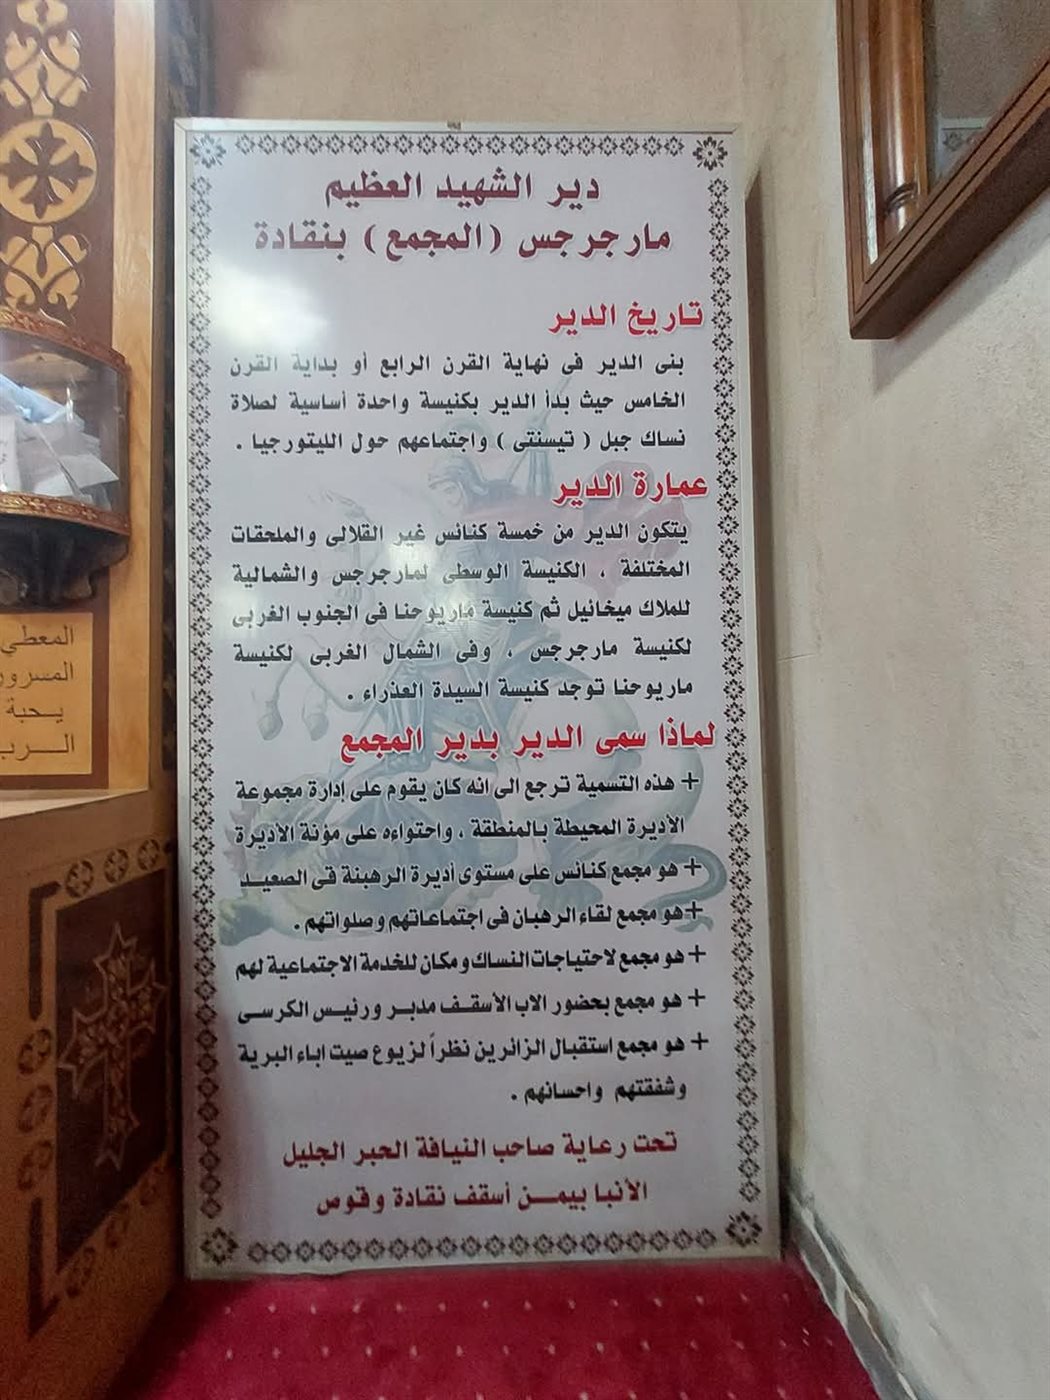 دير الشهيد العظيم
مارجرجس (المجمع) بنقادة
تاريخ الدير
بنى الدير فى نهاية القرن الرابع أو بداية القرن
الخامس حيث بدأ الدير بكنيسة واحدة أساسية لصلاة
نساك جبل (تيسنتى) واجتماعهم حول الليتورجيا .
عمارة الدير
يتكون الدير من خمسة كنائس غير القلالى والملحقات
المختلفة ، الكنيسة الوسطى لمارجرجس والشمالية
للملاك ميخائيل ثم كنيسة ماريوحنا فى الجنوب الغربى
لكنيسة مارجرجس ، وفى الشمال الغربى لكنيسة
ماريوحنا توجد كنيسة السيدة العذراء .
لماذا سمى الدير بدير المجمع
+ هذه التسمية ترجع الى انه كان يقوم على إدارة مجموعة
الأديرة المحيطة بالمنطقة ، واحتواءه على مؤنة الأديرة
+ هو مجمع كنائس على مستوى أديرة الرهبنة فى الصعيد
+ هو مجمع لقاء الرهبان فى اجتماعاتهم وصلواتهم .
+ هو مجمع لاحتياجات النساك ومكان للخدمة الاجتماعية لهم
+ هو مجمع بحضور الاب الأسقف مدبر ورئيس الكرسى
+ هو مجمع استقبال الزائرين نظراً لزيوع صيت اباء البرية
وشفقتهم واحسانهم .
تحت رعاية صاحب النيافة الحبر الجليل
الأنبا بيمن أسقف نقادة وقوص
المعطي
المسرور
يحبة
الرب